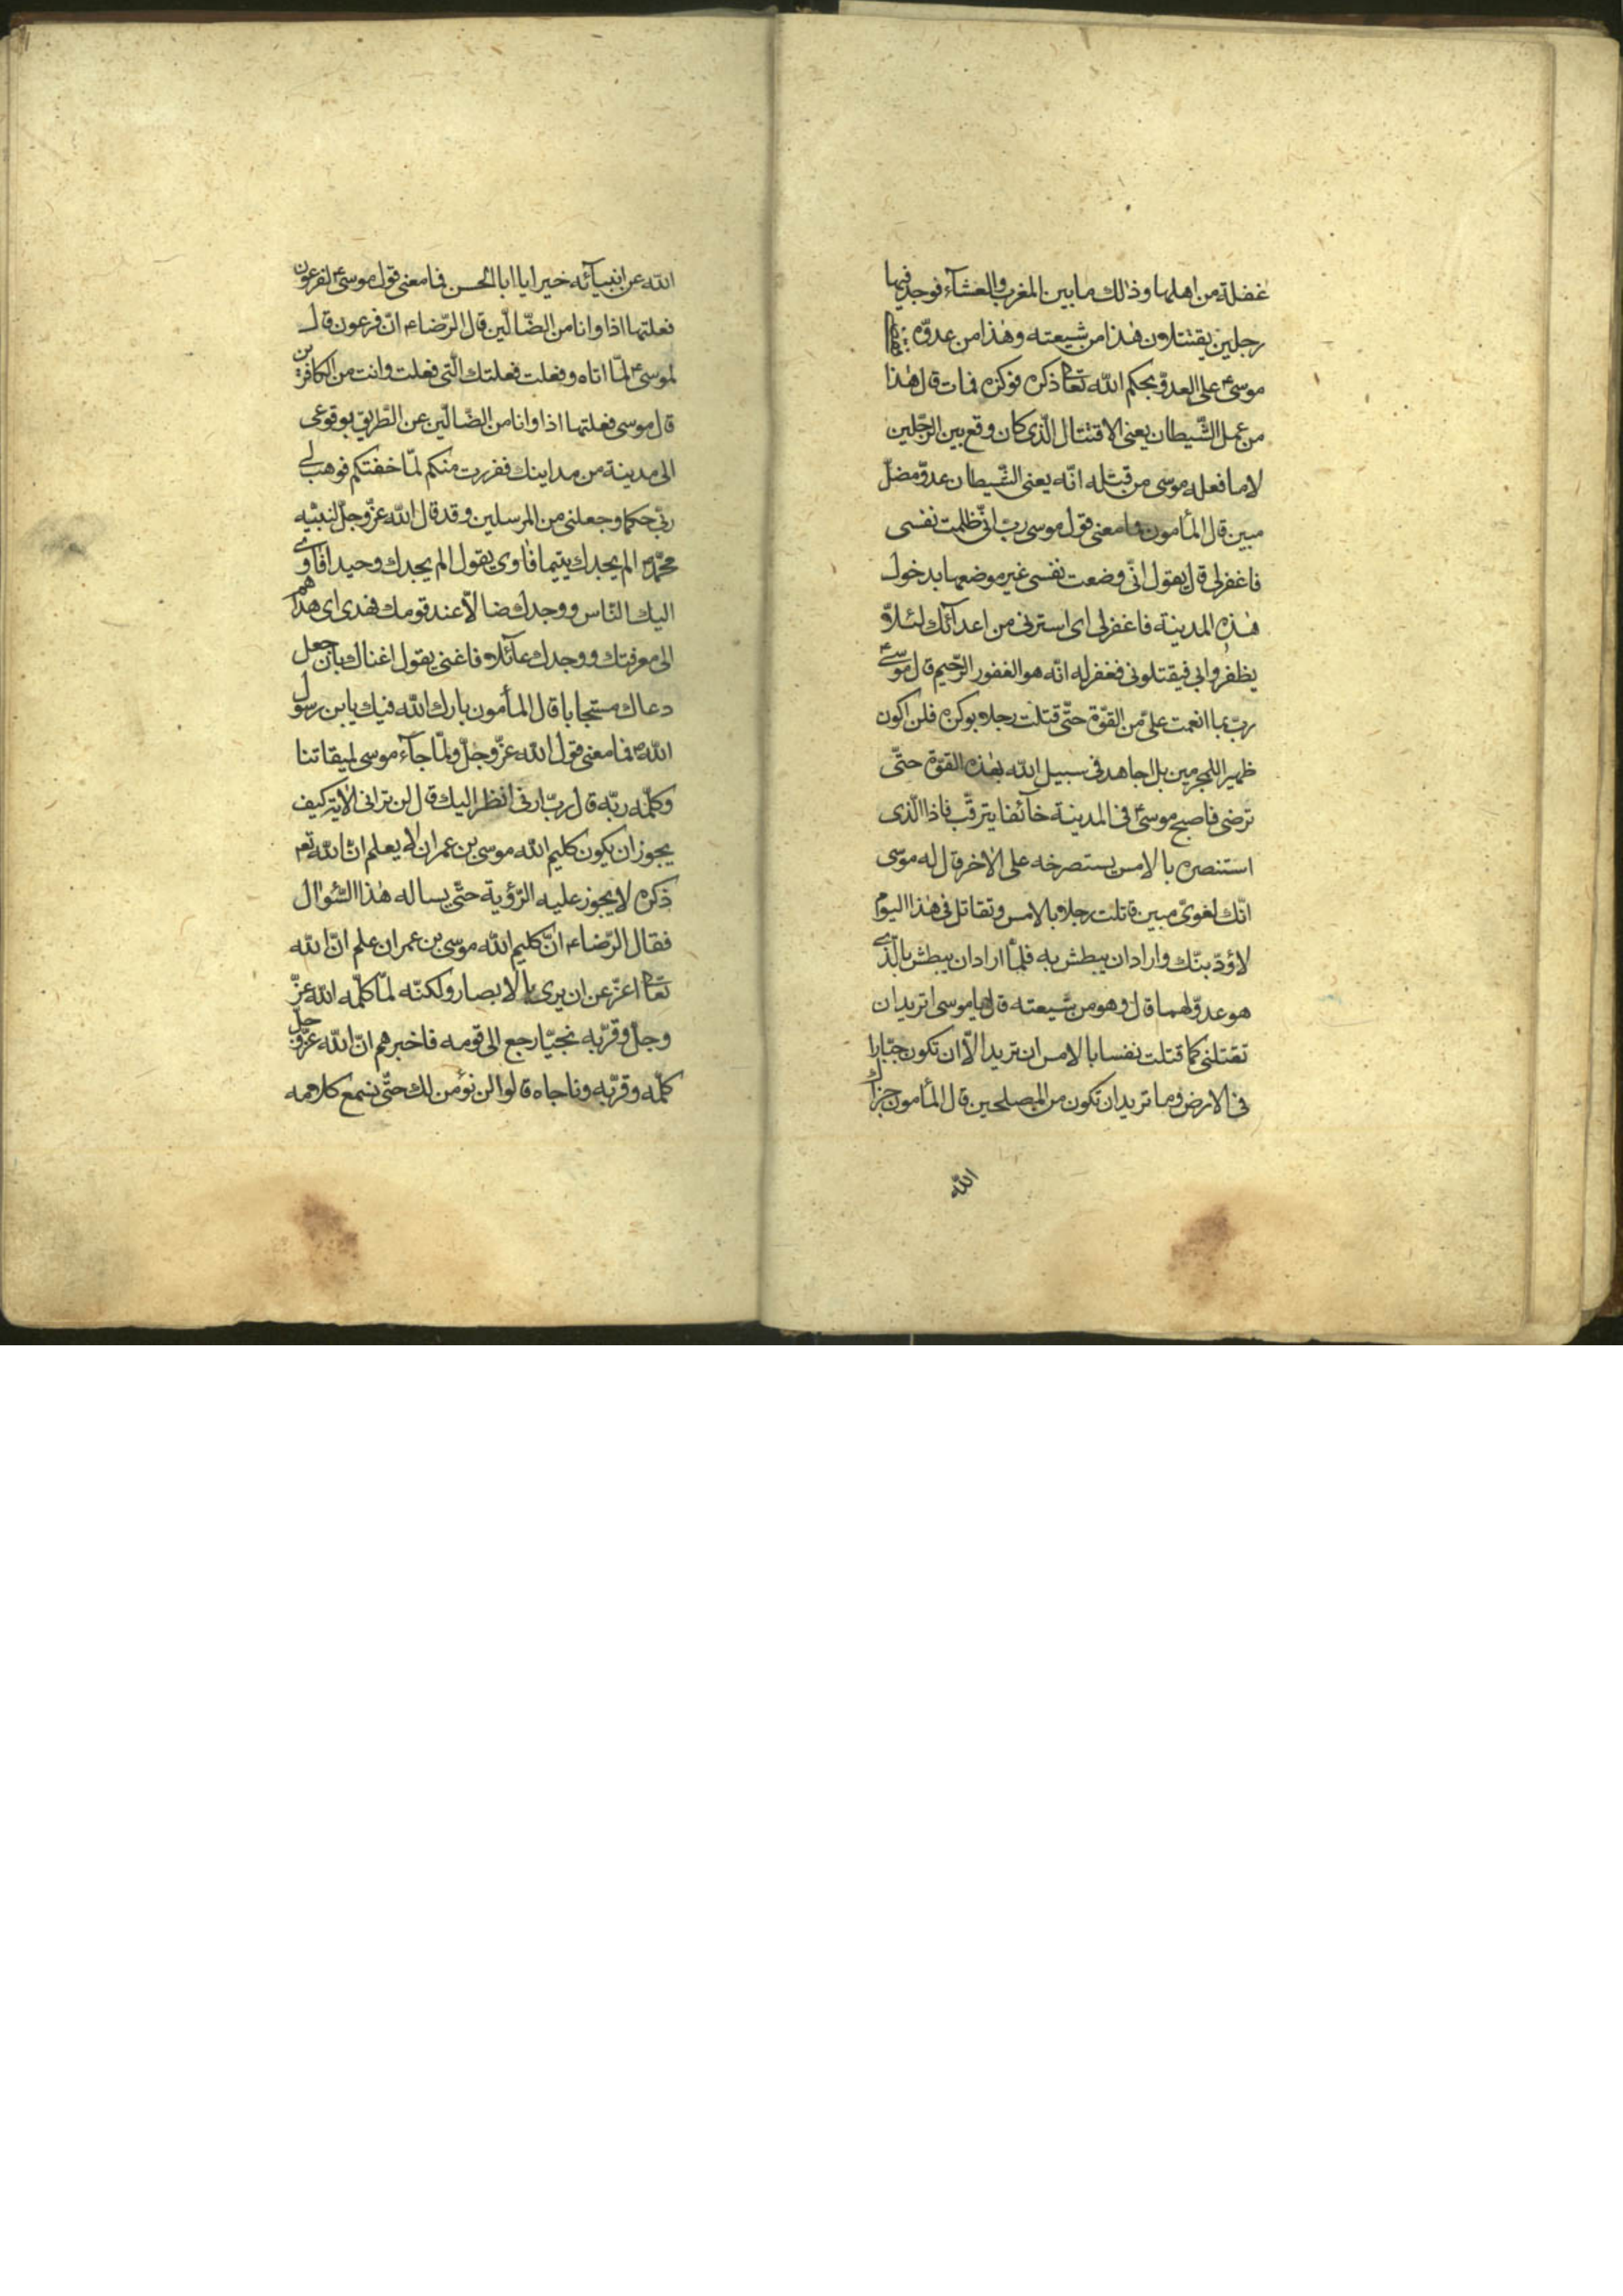 غفلة من اهلها وذلك ما بين المغرب والعشآء فوجد فيها
رجلين يقتتلان هذا من شيعته وهذا من عدوّه فقضى
موسى ع على العدوّ بحكم الله تعالى ذكره فوكزه فمات قال هذا
من عمل الشّيطان يعنى الاقتتال الّذى كان وقع بين الرّجلين
لا ما فعله موسى من قتله انّه يعنى الشّيطان عدوّ مضلّ
مبين قال المأمون فما معنى قول موسى ربّ انّى ظلمت نفسى
فاغفرلى قال يقول انّى وضعت نفسى غير موضعها بدخول
هذه المدينة فاغفرلى اى استرنى من اعدآئك لئلّا
يظفروا بى فيقتلونى فغفر له انّه هو الغفور الرّحيم قال موسى ع
ربّ بما انعمت علىّ من القوّة حتّى قتلت رجلا بوكزة فلن اكون
ظهيرا للمجرمين بل اجاهد فى سبيل الله بهذه القوّة حتّى
ترضى فاصبح موسى ع فى المدينة خآئفا يترقّب فاذا الّذى
استنصره بالامس يستصرخه على الاخر قال له موسى
انّك لغوىّ مبين قاتلت رجلا بالامس وتقاتل فى هذا اليوم
لاؤدّبنّك واراد ان يبطش به فلمّا اراد ان يبطش بالّذى
هو عدوّ لهما قال وهو من شيعته قال يا موسى اتريد ان
تقتلنى كما قتلت نفسا بالامس ان تريد الّا ان تكون جبّارا
فى الارض وما تريد ان تكون من المصلحين قال المأمون جزاك
الله
الله عن انبيآئه خيرا يا ابا الحسن فما معنى قول موسى ع لفرعون
فعلتها اذا وانا من الضّالّين قال الرّضا ع انّ فرعون قال
لموسى ع لمّا اتاه وفعلت فعلتك الّتى فعلت وانت من الكافرين
قال موسى فعلتها اذا وانا من الضّالّين عن الطّريق بوقوعى
الى مدينة من مداينك ففررت منكم لمّا خفتكم فوهب لى
ربّى حكما وجعلنى من المرسلين وقد قال الله عزّ وجلّ لنبيّه
محمّد ص الم يجدك يتيما فاوى يقول الم يجدك وحيدا فاوى
اليك النّاس ووجدك ضالّا عند قومك فهدى اى هداهم
الى معرفتك ووجدك عآئلا فاغنى يقول اغناك بان جعل
دعاك مستجابا قال المأمون بارك الله فيك يا بن رسول
الله ص فما معنى قول الله عزّ وجلّ ولمّا جآء موسى لميقاتنا
وكلّمه ربّه قال ربّ ارنى انظر اليك قال لن ترانى الاية كيف
يجوز ان يكون كليم الله موسى بن عمران لا يعلم انّ الله تع
ذكره لا يجوز عليه الرّؤية حتّى يساله هذا السّؤال
فقال الرّضا ع انّ كليم الله موسى بن عمران علم انّ الله
تعالى اعزّ عن ان يرى بالابصار ولكنّه لمّا كلّمه الله عزّ
وجلّ وقرّبه نجيّا رجع الى قومه فاخبرهم انّ الله عزّ وجلّ
كلّمه وقرّبه وناجاه قالوا لن نؤمن لك حتّى نسمع كلامه